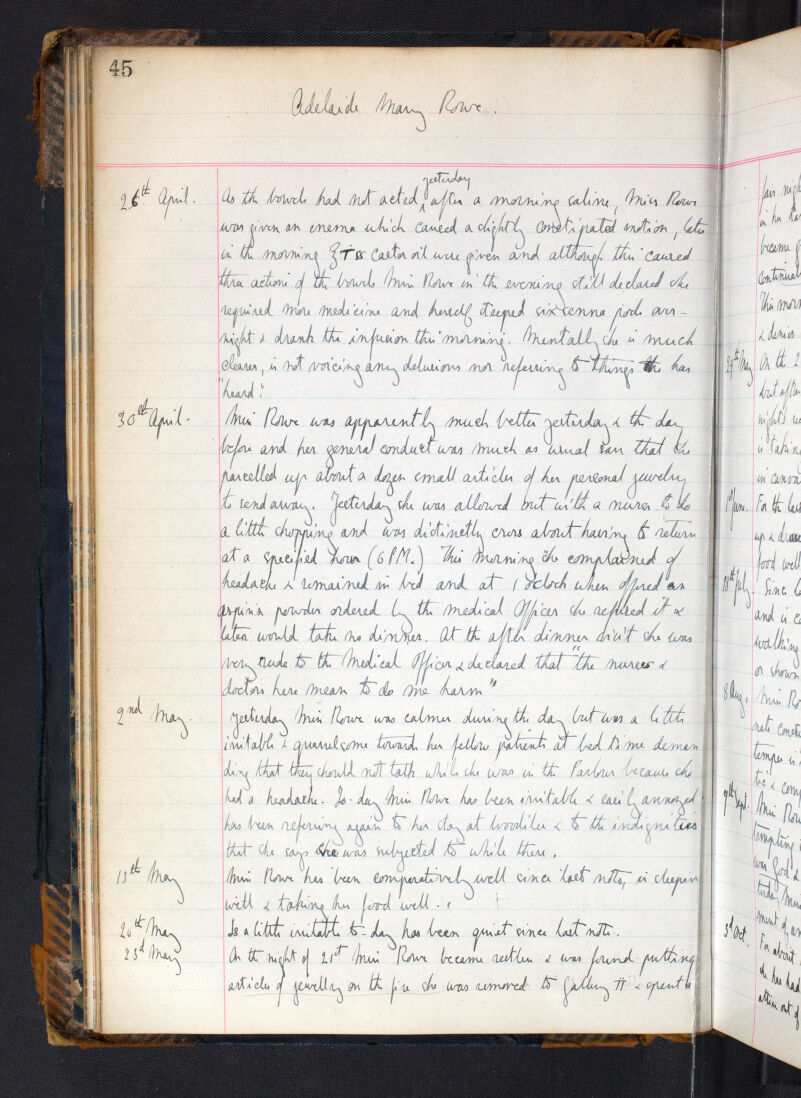 45
Adelaide Mary Rowe.
26th April. As the bowels had not acted yesterday after a morning saline, Miss Rowe
was given an enema which caused a slightly constipated motion, later
in the morning ʒTss castor oil were given and although this caused
three actions of the bowels Miss Rowe in the evening still declared she
required more medicine and herself steeped six senna pods over-
night & drank the infusion this morning. Mentally she is much
clearer, is not voicing any delusions nor referring to things she has
"heard".
30th April. Miss Rowe was apparently much better yesterday & the day
before and her general conduct was much as usual save that she
parcelled up about a dozen small articles of her personal jewelry
to send away. Yesterday she was allowed out with a nurse to do
a little shopping and was distinctly cross about having to return
at a specified hour (6 P.M.) This morning she complained of
headache & remained in bed and at 1 o'clock when offered an
aspirin powder ordered by the medical Officer she refused it &
later would take no dinner. At the after dinner visit she was
very rude to the Medical Officer & declared that "the nurses &
doctors here mean to do me harm"
2nd May. Yesterday Miss Rowe was calmer during the day but was a little
irritable & quarrelsome towards her fellow patients at bed time deman
ding that they should not talk while she was in the Parlour because she
had a headache. To-day Miss Rowe has been irritable & easily annoyed
has been referring again to her stay at Woodilee & to the indignities
that she says she was subjected to while there.
13th May Miss Rowe has been comparatively well since last note, is sleeping
well & taking her food well.
20th May Is a little irritable to-day has been quiet since last note.
23d May On the night of 21st Miss Rowe became restless & was found putting
articles of jewellry on the fire she was removed to Gallery II & spent a
fair
in her
became
continual
This morn
& denies
29th May On the 2
but after
night's
is taking
in canva
1st June. For the last
up & dress
food well
18th July Since
and is
walking
or shown
8 Aug. Miss Ro
temper is
& comp
9th Sept. Miss Row
tempting
was God &
ment of an
3d Oct. For about
she has had
out of